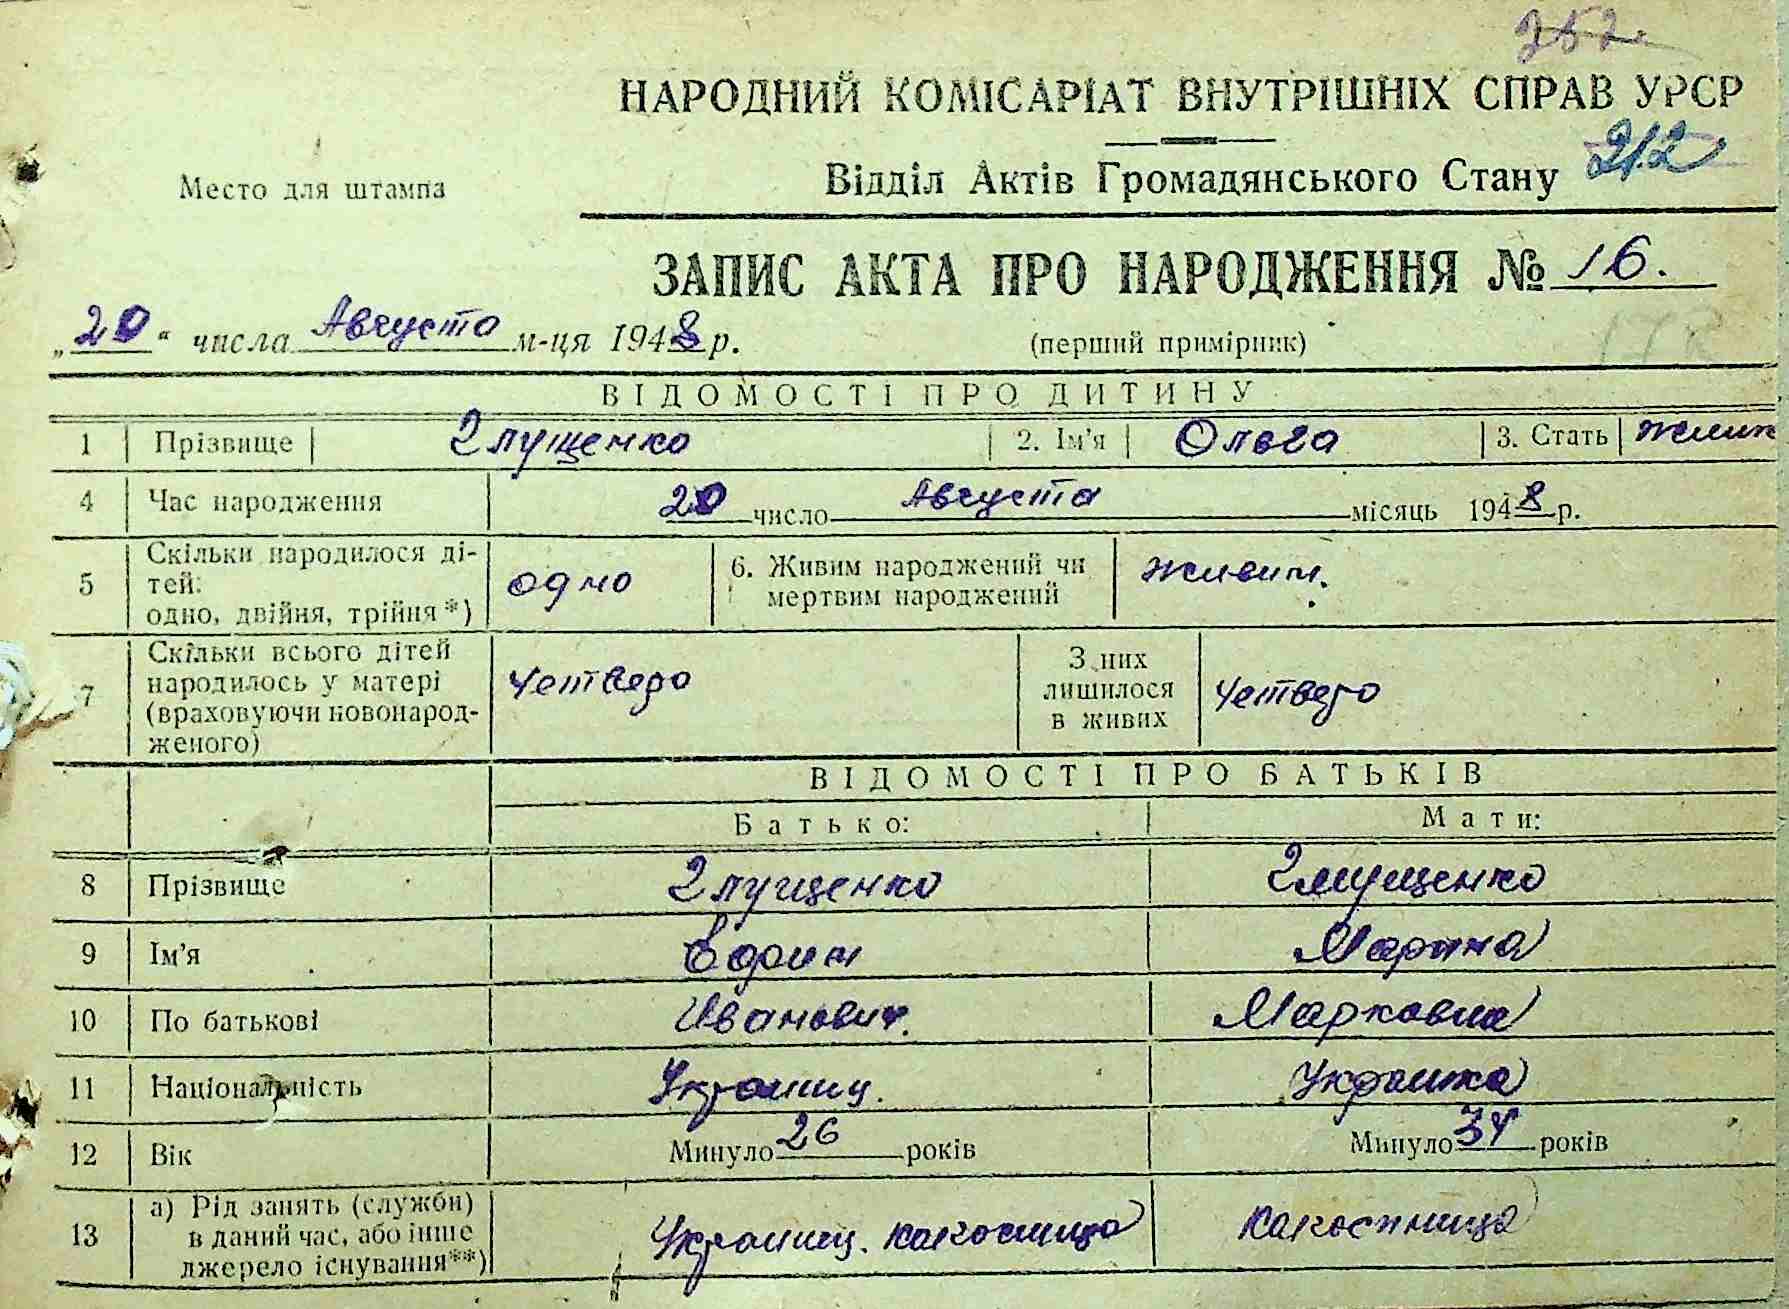 252.
НАРОДНИЙ КОМІСАРІАТ ВНУТРІШНІХ СПРАВ УРСР
212
Место для штампа
Відділ Актів Громадянського Стану
ЗАПИС АКТА ПРО НАРОДЖЕННЯ № 16.
„20“ числа Августа м-ця 1948 р.
(перший примірник)
ВІДОМОСТІ ПРО ДИТИНУ
1 Прізвище Глущенко 2. Ім'я Ольга 3. Стать
4 Час народження 20 число Августа місяць 1948 р.
5 Скільки народилося ді-
тей:
одно, двійня, трійня*)
одно
6. Живим народжений чи
мертвим народжений
живим.
7 Скільки всього дітей
народилось у матері
(враховуючи новонарод-
женого)
четверо
З них
лишилося
в живих
четверо
ВІДОМОСТІ ПРО БАТЬКІВ
Батько: Мати:
8 Прізвище Глущенко Глущенко
9 Ім'я Марина
10 По батькові Иванович. Марковна
11 Національність Украинец. Украинка
12 Вік Минуло 26 років Минуло 34 років
13 а) Рід занять (служби)
в даний час, або інше
джерело існування**)
Украинец. колхозница колхозница